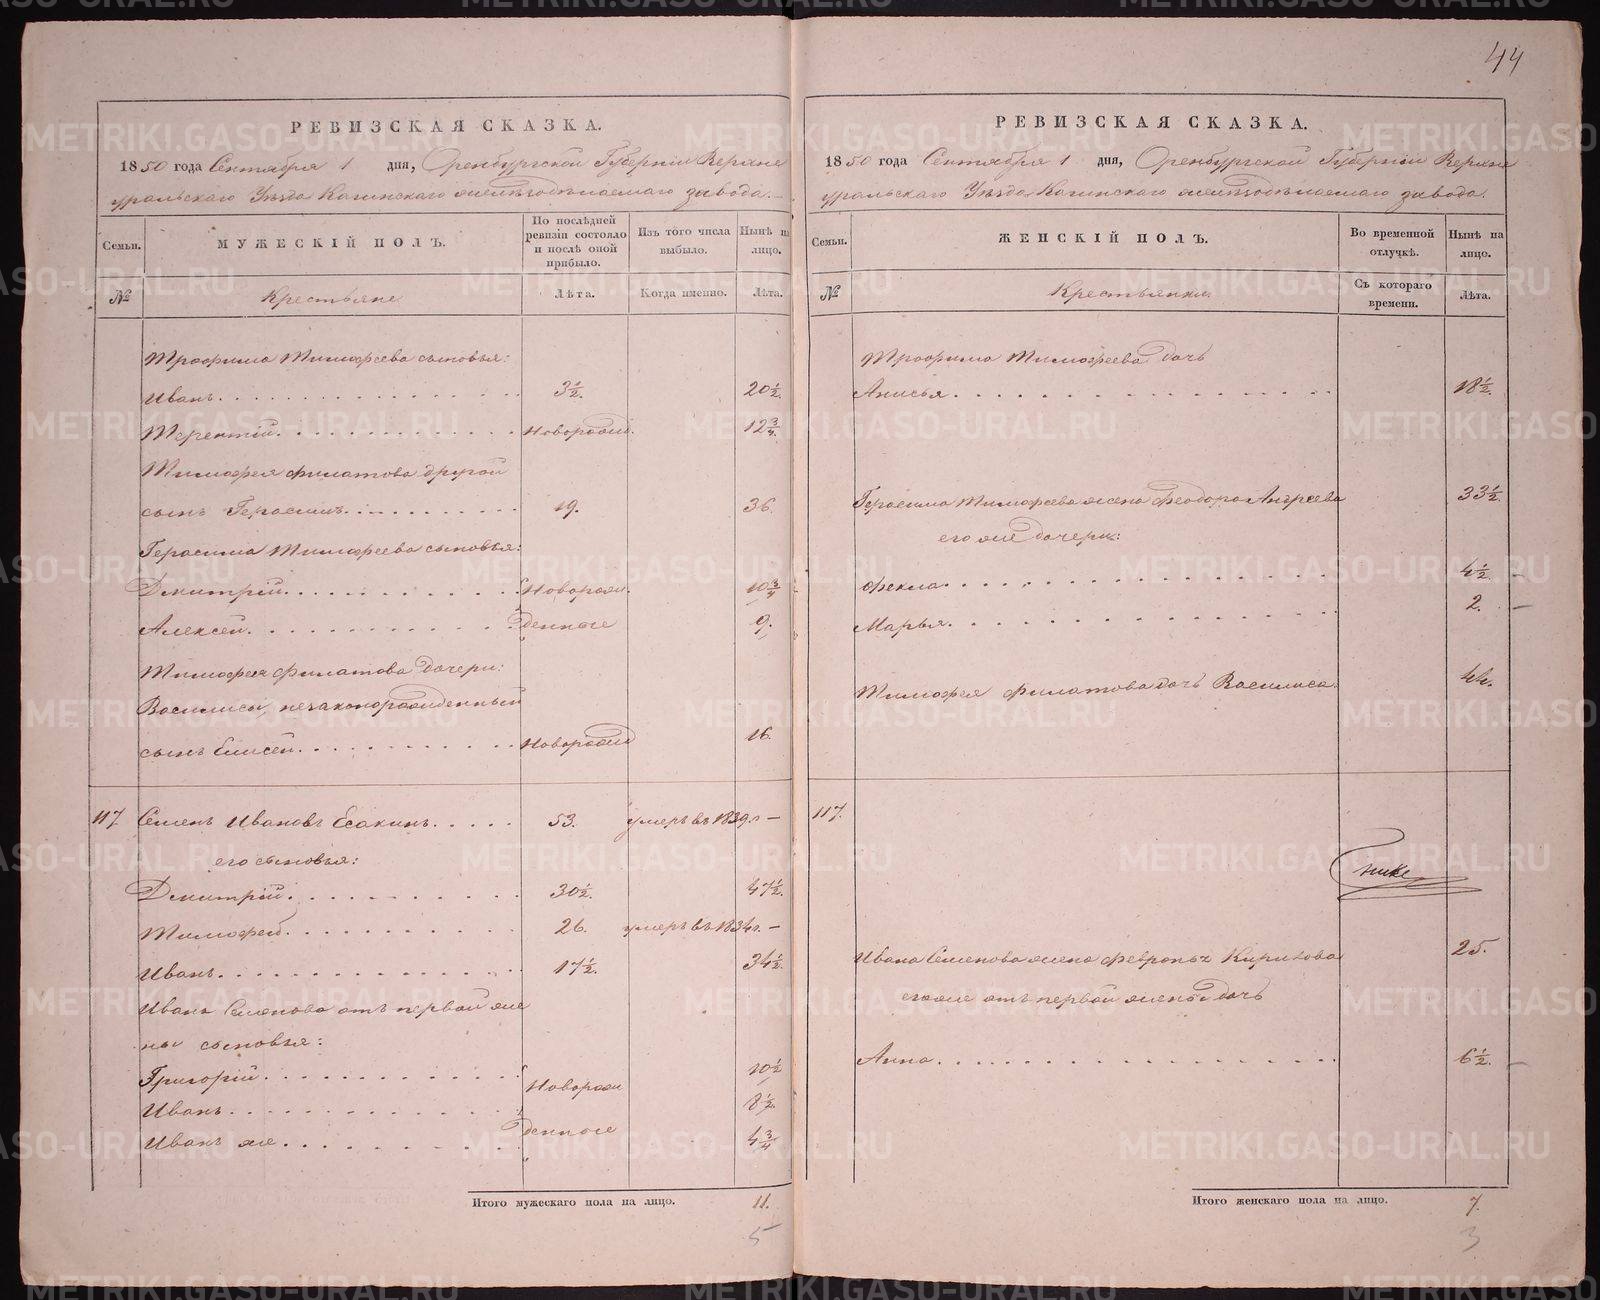 РЕВИЗСКАЯ СКАЗКА.
1850 года Сентября 1 дня, Оренбургской Губернiи Верхне
уральскаго Уѣзда Кагинскаго желѣзодѣлаемаго завода.
Семьи.
МУЖЕСКІЙ ПОЛЪ.
По послѣдней ревизіи состояло и послѣ оной прибыло.
Изъ того числа выбыло.
Нынѣ на лицо.
№
Крестьяне
Лѣта.
Когда именно.
Лѣта.
Трофима Тимофеева сыновья:
Иванъ 3½. 20½.
Терентій Новорожд. 12¾.
Тимофея Филатова другой
сынъ Герасимъ 19. 36.
Герасима Тимофеева сыновья:
Дмитрій Новорож 10¾
Алексей денные 9.
Тимофея Филатова дочери:
Василисы, незаконорожденный
сынъ Елисей Новорожд 16.
117. Семенъ Ивановъ Есакинъ 53. умеръ въ 1839г. —
его сыновья:
Дмитрій 30½. 47½.
Тимофей 26. умеръ въ 1834г. —
Иванъ 17½. 34½.
Ивана Семенова отъ первой же
ны сыновья:
Григорій Новорож 10½
Иванъ 8½.
Иванъ же денные 4¾
Итого мужескаго пола на лицо. 11.
5
44
РЕВИЗСКАЯ СКАЗКА.
1850 года Сентября 1 дня, Оренбургской Губернiи Верхне
уральскаго Уѣзда Кагинскаго желѣзодѣлаемаго завода.
Семьи.
ЖЕНСКІЙ ПОЛЪ.
Во временной отлучкѣ.
Нынѣ на лицо.
№
Крестьянки.
Съ котораго времени.
Лѣта.
Трофима Тимофеева дочь
Анисья 18½.
Герасима Тимофеева жена Феодора Андреева 33½.
его же дочери:
Фекла 4½. —
Марья 2. —
Тимофея Филатова дочь Василиса 44.
117.
Ивана Семенова жена Февронья Кирилова 25.
его же отъ первой жены дочь
Анна 6½. —
Итого женскаго пола на лицо. 7.
3
METRIKI.GASO-URAL.RU